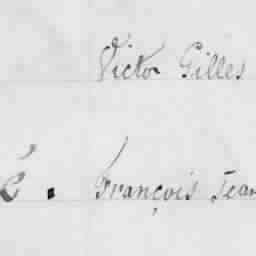 Victor Gilles
2. François Jean